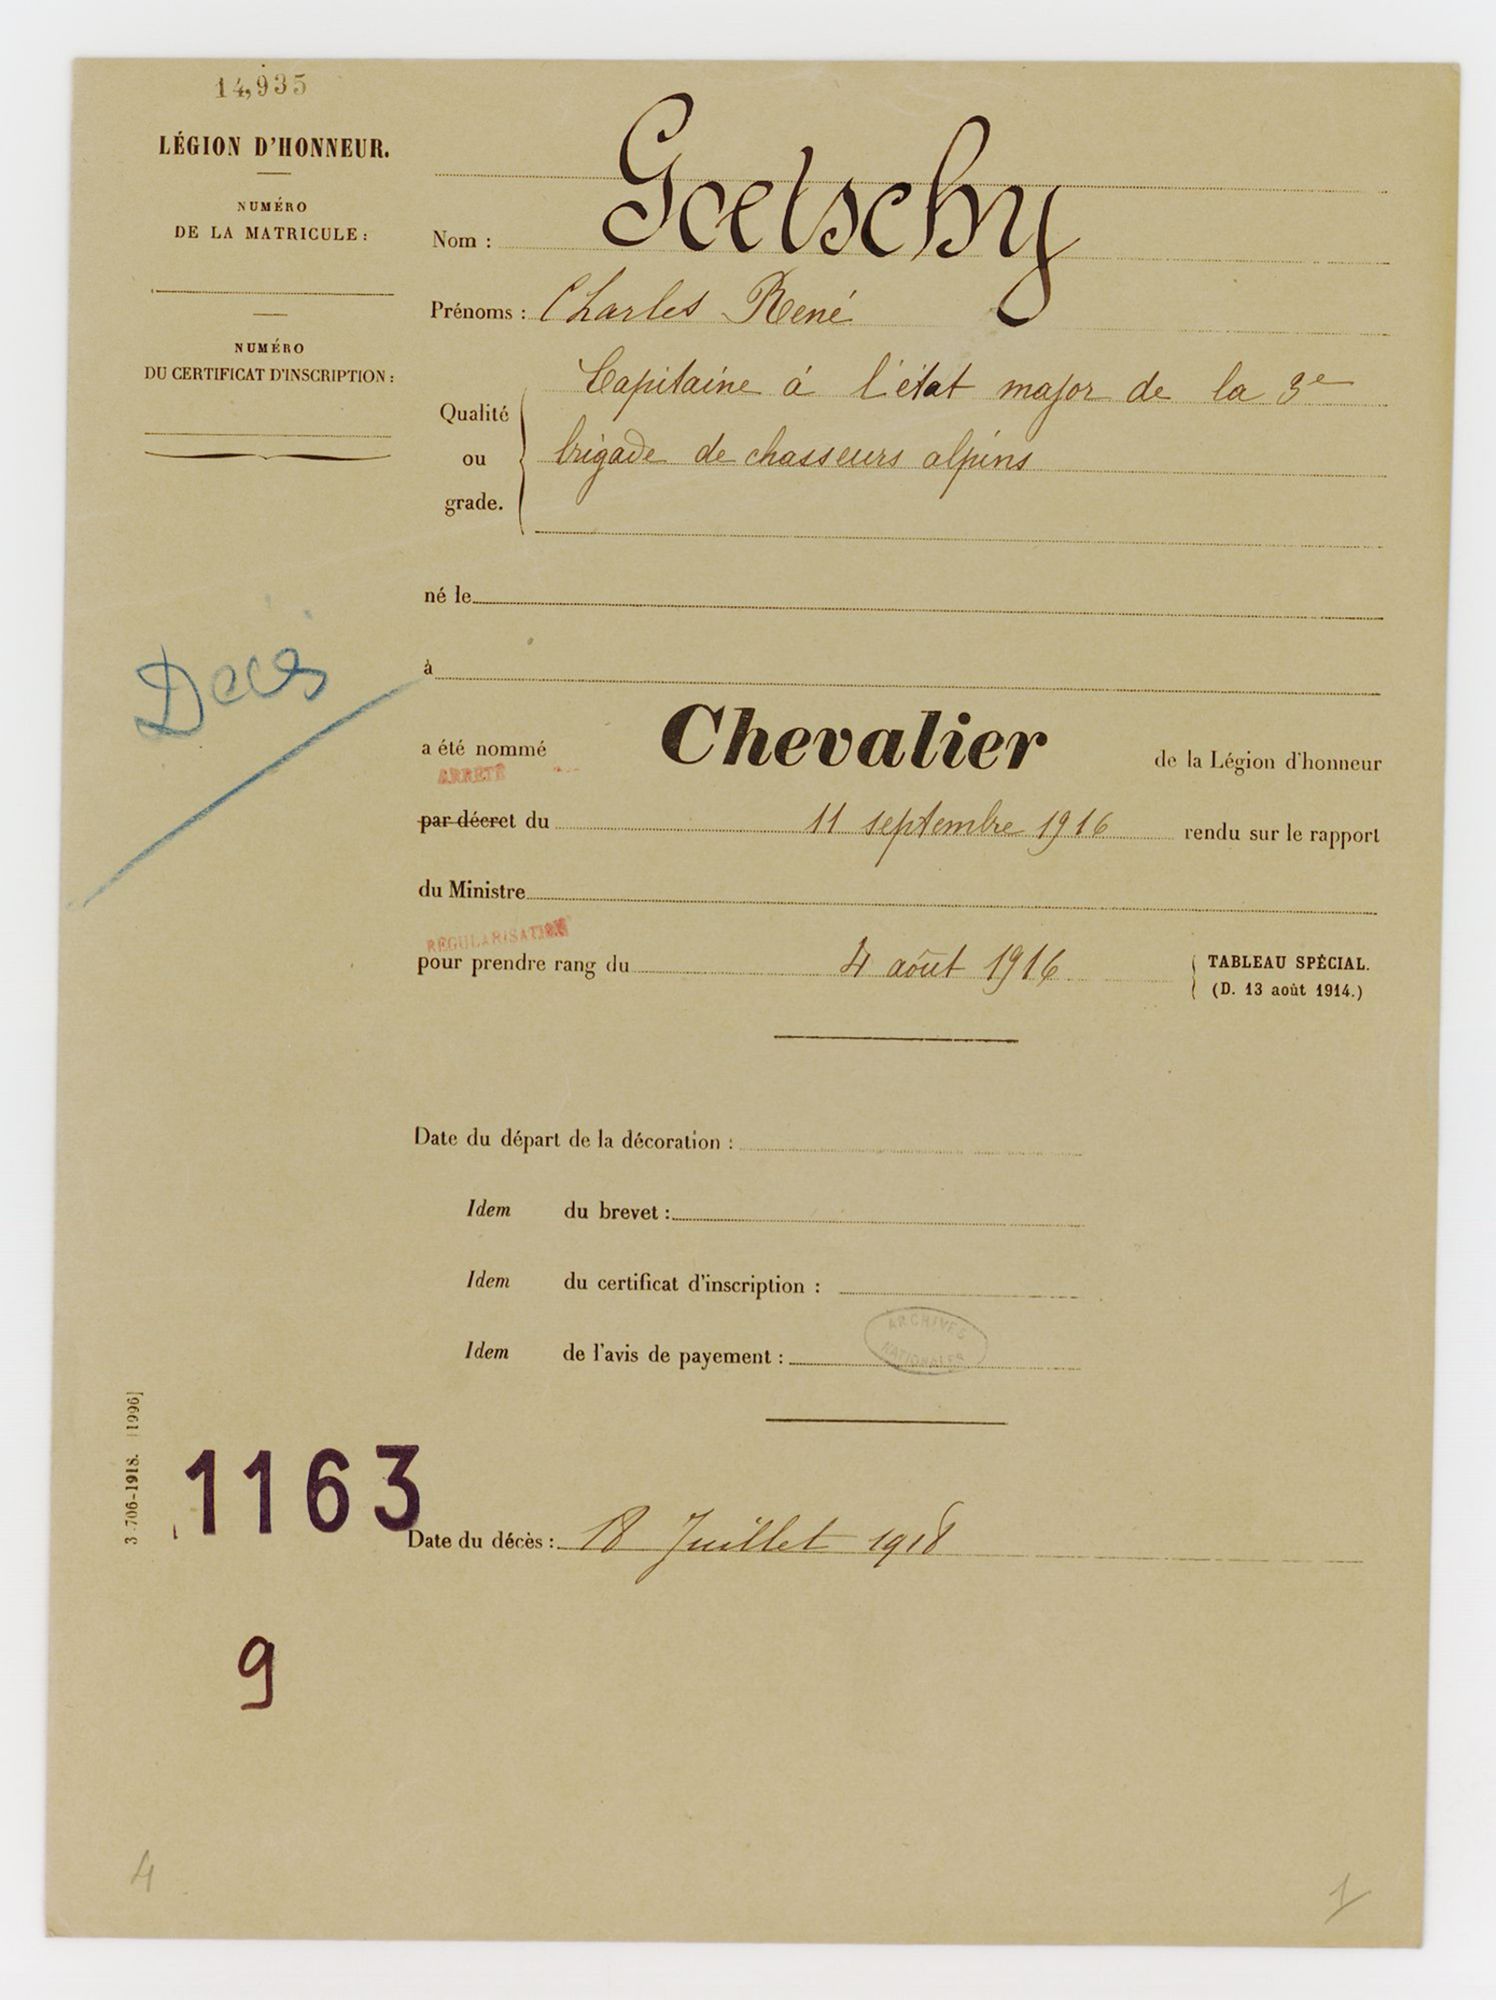 14,935
LÉGION D'HONNEUR.
NUMÉRO
DE LA MATRICULE :
NUMÉRO
DU CERTIFICAT D'INSCRIPTION :
Nom : Goetschy
Prénoms : Charles René
Qualité
ou
grade.
Capitaine à l'état major de la 3e
brigade de chasseurs alpins
né le
à
Décès
a été nommé Chevalier de la Légion d'honneur
ARRETÉ
par décret du 11 septembre 1916 rendu sur le rapport
du Ministre
RÉGULARISATION
pour prendre rang du 4 août 1916
TABLEAU SPÉCIAL.
(D. 13 août 1914.)
Date du départ de la décoration :
Idem du brevet :
Idem du certificat d'inscription :
Idem de l'avis de payement :
ARCHIVES
NATIONALES
3-706-1918. [1996]
1163
Date du décès : 18 Juillet 1918
9
4
1